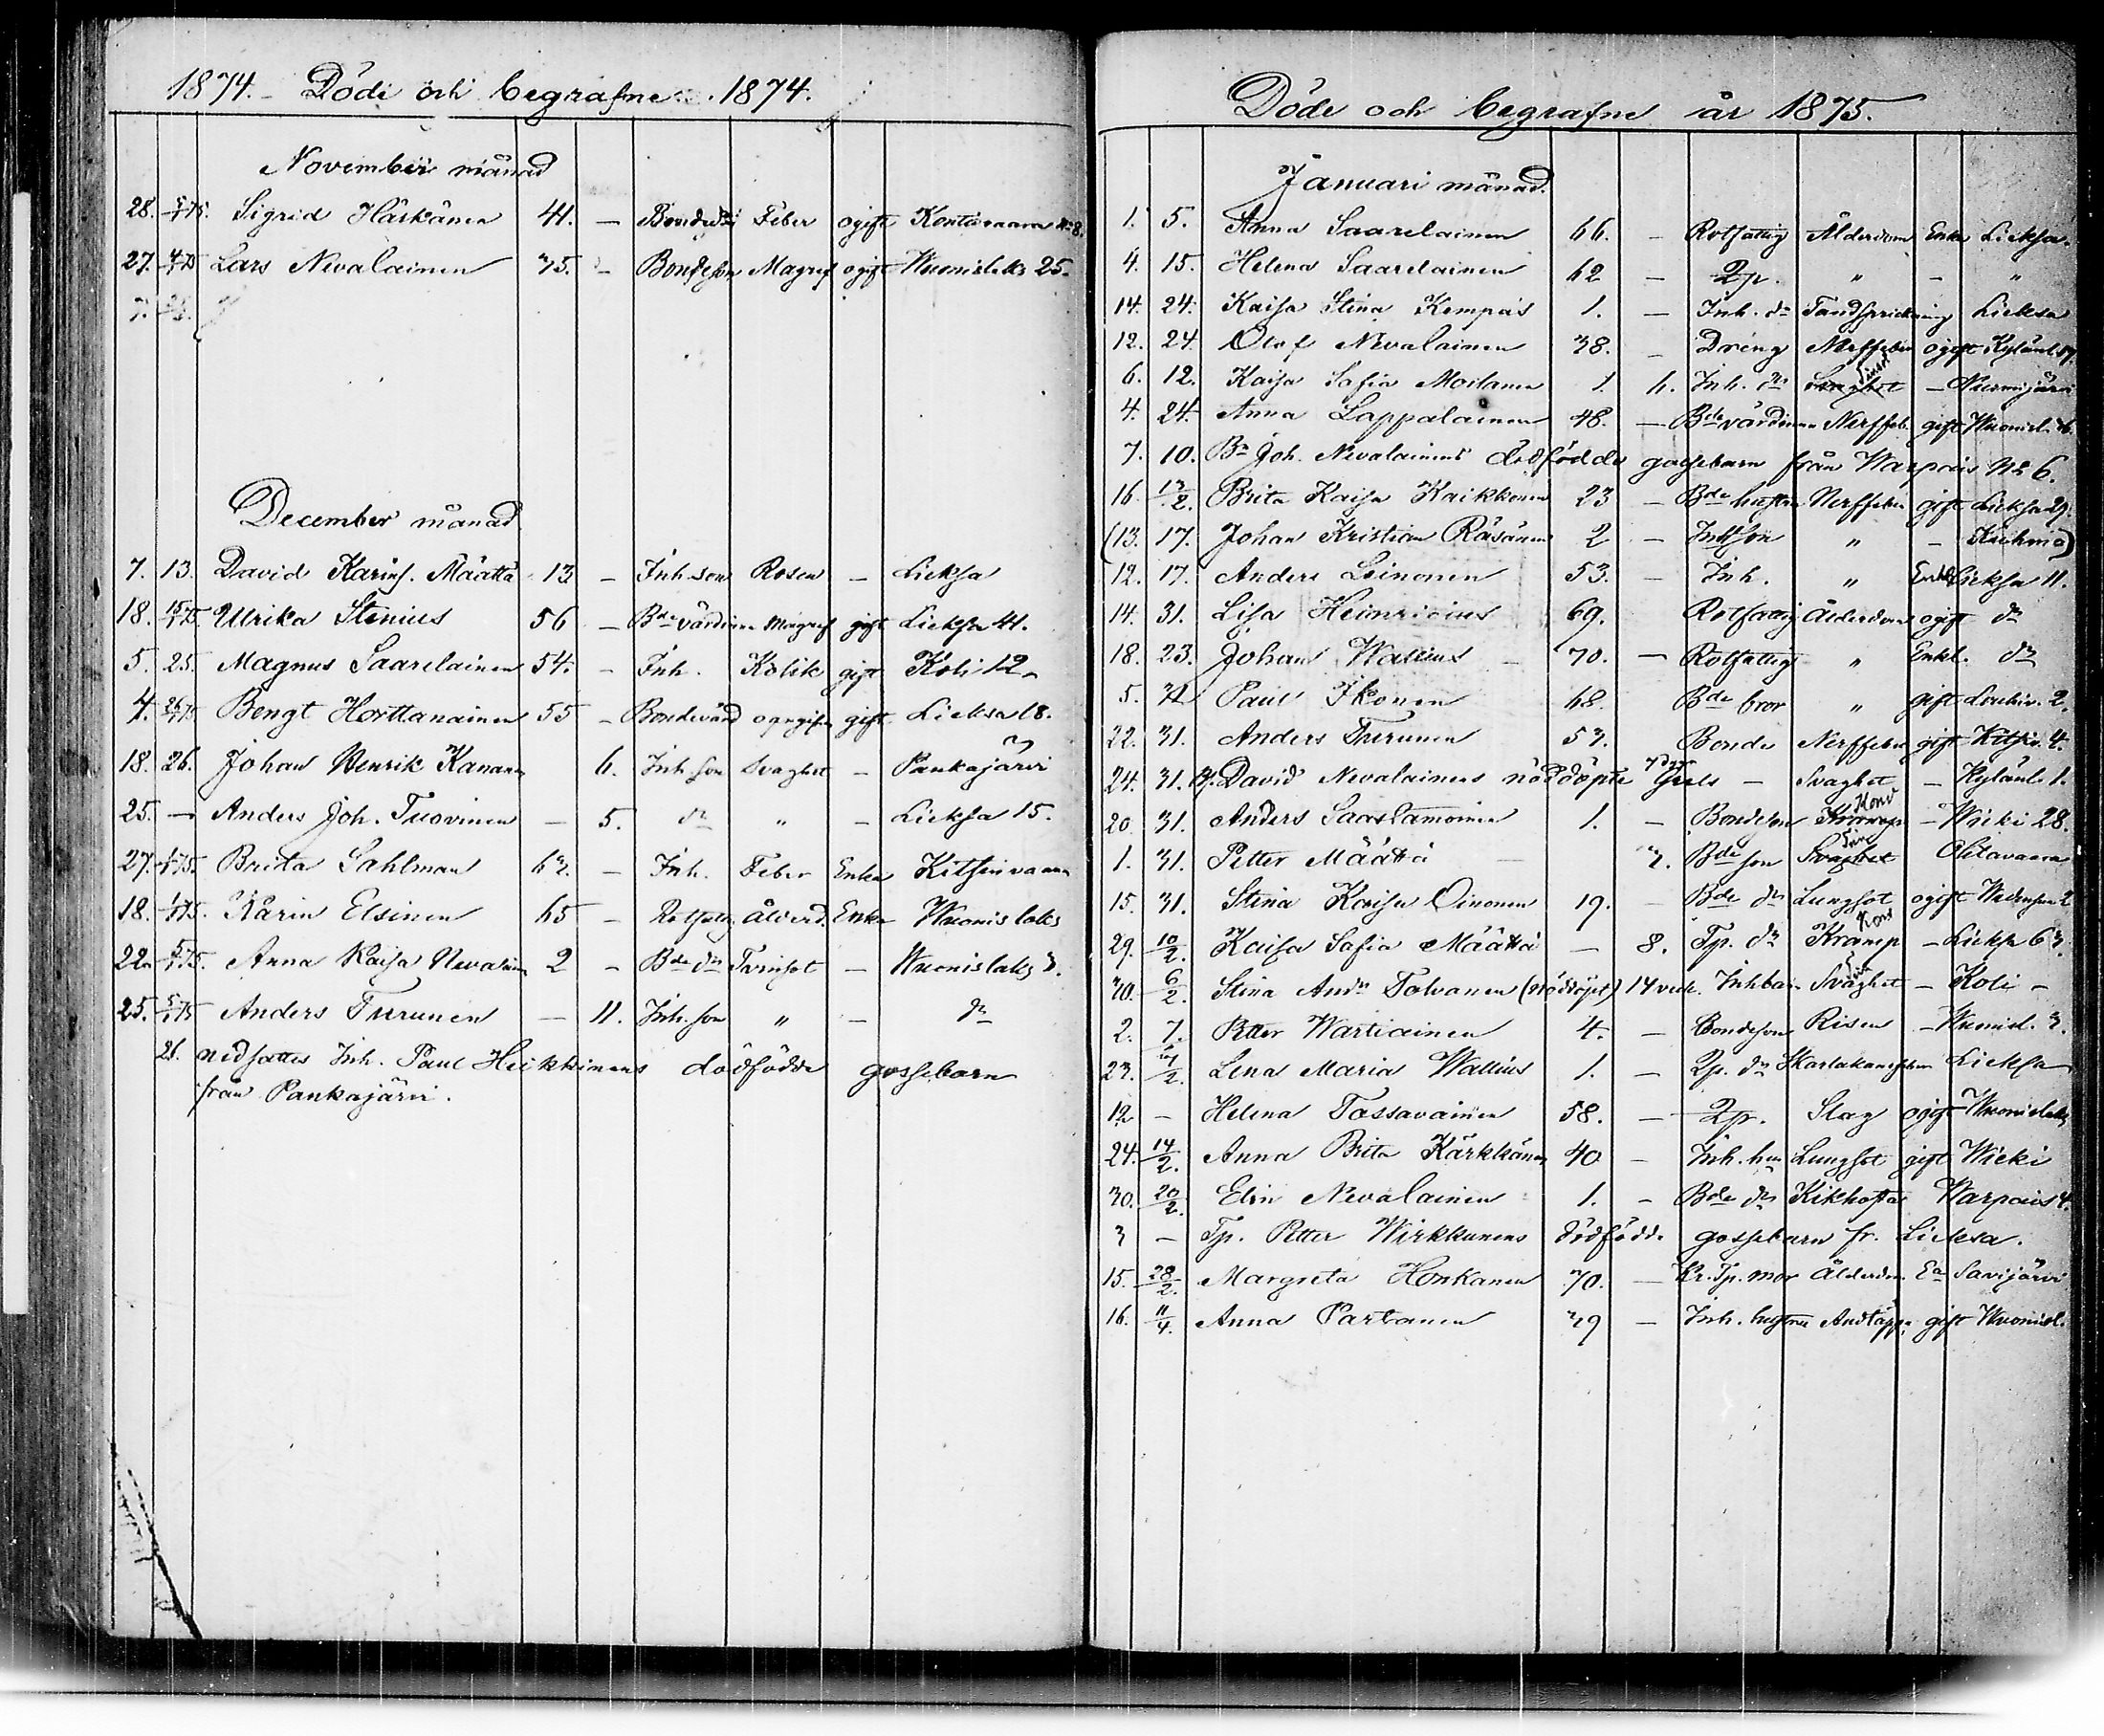 1874. Döde och begrafne 1874.
November månad
28. 5/1 75. Sigrid Härkänen 41. — Feber ogift Kontiovaara No 8.
27. 4/1 75 Lars Nevalainen 35. — Bondeson Magref ogift Wuonislaks 25.
December månad
7. 13. David Karins. Määttä 13 — Inh. son Rosen — Lieksa
18. 15/1 75 Ulrika Stenius 56 — Bde värdinna Magref gift Lieksa 41.
5. 25. Magnus Saarelainen 54. — Inh. Kolik gift Koli 12.
4. 26/1 75 Bengt Horttanainen 55 — Bondevärd gift Lieksa 18.
18. 26. Johan Henrik Kananen 6. Inh. son Svaghet — Pankajärvi
25. — Anders Joh. Tuovinen — 5. do " — Lieksa 15.
27. 1/1 75. Brita Sahlman 63. — Inh. Feber Enka Kitsinvaara
18. 1/1 75. Karin Elsinen 65 — Rotfattig Ålderd. Enka Wuonislaks
22. 5/1 75. Anna Kaisa Nevalainen 2 — Bde dr Tvinsot — Wuonislaks 3.
25. 5/1 75 Anders Turunen — 11. Inh. son " — do
26. nedsattes Inh. Paul Heikkinens dödfödde gossebarn
från Pankajärvi.
Döde och begrafne år 1875.
Januari månad.
1. 5. Anna Saarelainen 66. — Rotfattig Ålderdom Enka Lieksa.
4. 15. Helena Saarelainen 62 — " — "
14. 24. Kaisa Stina Kempas 1. — Inh. dr Tandsprickning Lieksa
12. 24. Olof Nevalainen 38. — Dräng Nerffeber ogift Kylänl.
6. 12. Kaisa Safia Moilanen 1 h. Inh. dr Svaghet — Nurmijärvi
4. 24. Anna Lappalainen 48. — Bde värdinna Nerffeb. gift Wuonisl.
7. 10. Bn Joh. Nevalainens dödfödde gossebarn från Warpais No 6.
16. 13/2. Brita Kaisa Kaikkonen 23 — Bde hustru Nerffeber gift Lieksa 29.
(13. 17. Johan Kristian Räsänen 2 — Inh. son " — Kuhmo)
12. 17. Anders Leinonen 53. — Inh. " Enkl Lieksa 11.
14. 31. Lisa Heinricius 69. Rotfattig Ålderdom ogift do
18. 23. Johan Wallius — 70. — Rotfattig " Enkl. do
5. 31 Paul Ikonen 68. Bde bror " gift 2.
22. 31. Anders Turunen 53. Bonde Nerffeber gift Kitsiv. 4.
24. 31. David Nevalainens nöddöpte — Svaghet — Kylänl. 1.
20. 31. Anders Saastamoinen 1. — Bondeson Kramp — Wieki 28.
1. 31. Petter Määttä — 3. Bde son Svaghet
15. 31. Stina Kaisa Oinonen 19. — Bde dr Lungsot ogift
29. 10/2. Kaisa Safia Määttä — 8. Tp. dr Kramp — Lieksa 63.
30. 6/2. Stina Andr Tolvanen (nöddöpt) 14 veck. Inh barn Svaghet — Koli —
2. 7. Petter Wartiainen 4. — Bondeson — Wuonisl. 3.
23. Lena Maria Wallius 1. — dr Skarlakansfeber Lieksa
12 — Helena Tossavainen 58. — Slag ogift Wuonislaks
24. 14/2. Anna Brita Kärkkänen 40 — Inh. hu Lungsot gift Wieki
30. 20/2. Elin Nevalainen 1. — Bde dr Kikhosta Warpais 4.
3 — Tp. Petter Wirkkunens dödfödde gossebarn fr. Lieksa.
15. 28/2. Margreta Honkanen 70. — Kr. Tp. mor Ålderdom Ea Savijärvi
16. 11/4. Anna Partanen 39 — Inh. hustru Andtäppa gift Wuonisl.